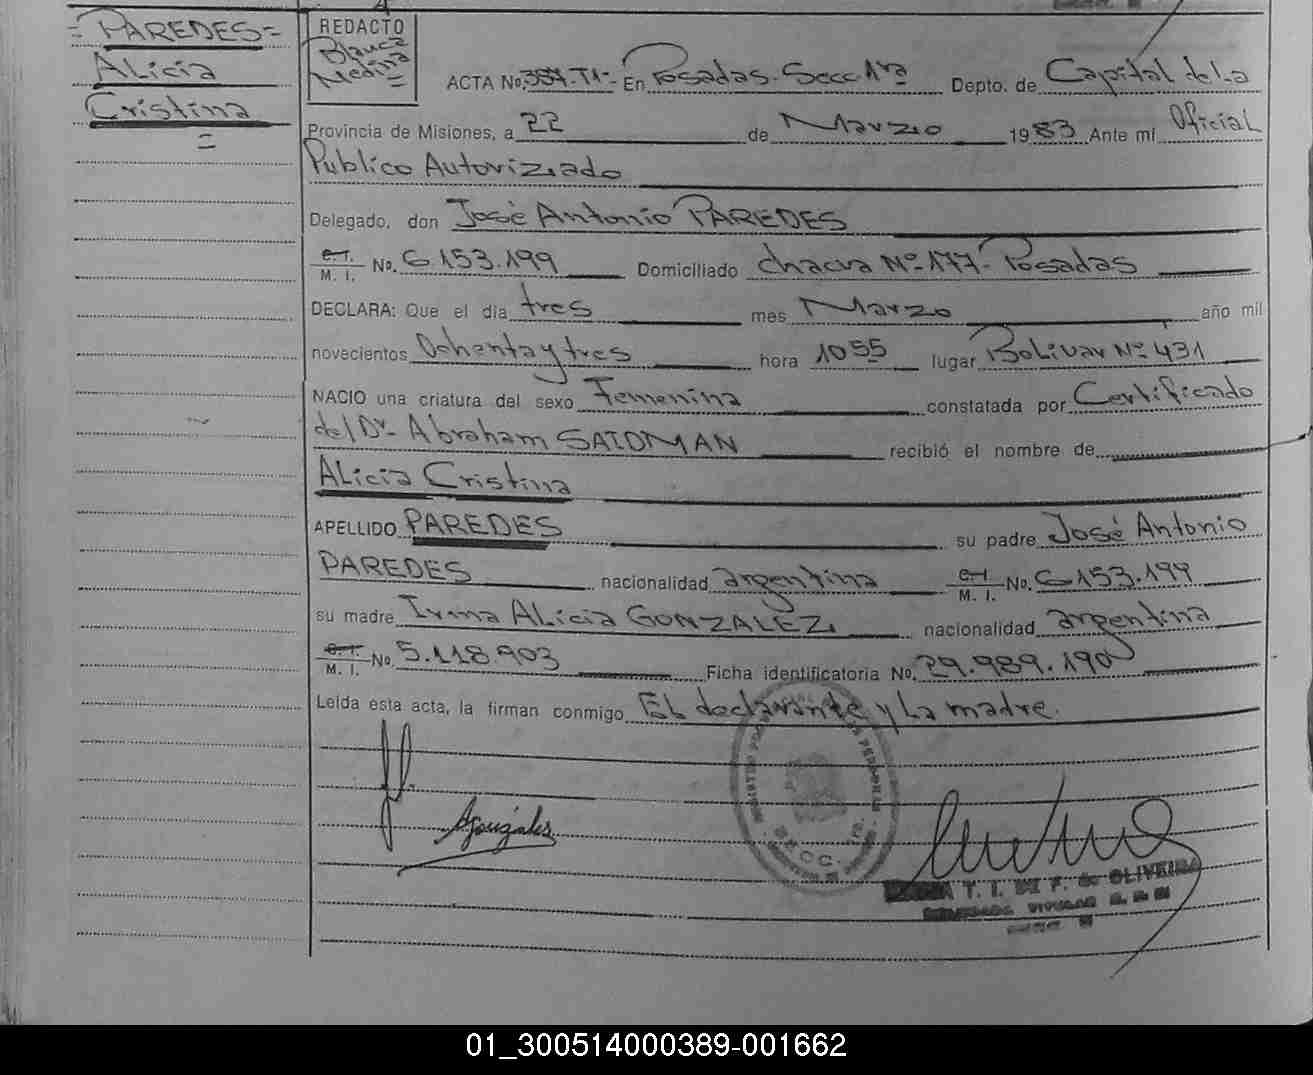 = PAREDES =
Alicia
Cristina
=
REDACTO
Blanca
Medina
=
ACTA No. 387-T1- En Posadas-Secc 1ra Depto. de Capital de la
Provincia de Misiones, a 22 de Marzo 1983 Ante mi Oficial
Publico Autorizado
Delegado, don José Antonio PAREDES
C.I.
M. I. No. 6.153.199 Domiciliado chacra Nº 177- Posadas
DECLARA: Que el dia tres mes Marzo año mil
novecientos Ochenta y tres hora 10 55 lugar Bolivar Nº 431
NACIO una criatura del sexo Femenina constatada por Certificado
del Dr- Abraham recibió el nombre de
Alicia Cristina
APELLIDO PAREDES su padre José Antonio
PAREDES nacionalidad argentina C.I.
M. I. No. 6.153.199
su madre Irma Alicia GONZALEZ nacionalidad argentina
C.I.
M. I. No. 5.118.903 Ficha identificatoria No. 29.989.190
Leida esta acta, la firman conmigo El declarante y La madre.
AGonzáles
T. I. DE F. de OLIVEIRA
01_300514000389-001662